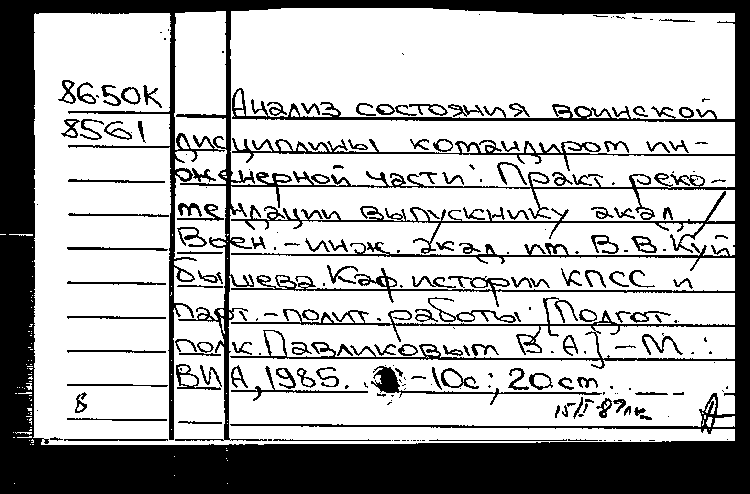 86.50К
8561
Анализ состояния воинской
дисциплины командиром ин-
женерной части: Практ. реко-
мендации выпускнику акад.
Воен.-инж. акад. им. В.В. Куй
бышева. Каф. истории КПСС и
парт.-полит. работы. [Подгот.
полк. Павликовым В.А.] - М.:
ВИА, 1985. - 10с.; 20 см.
8